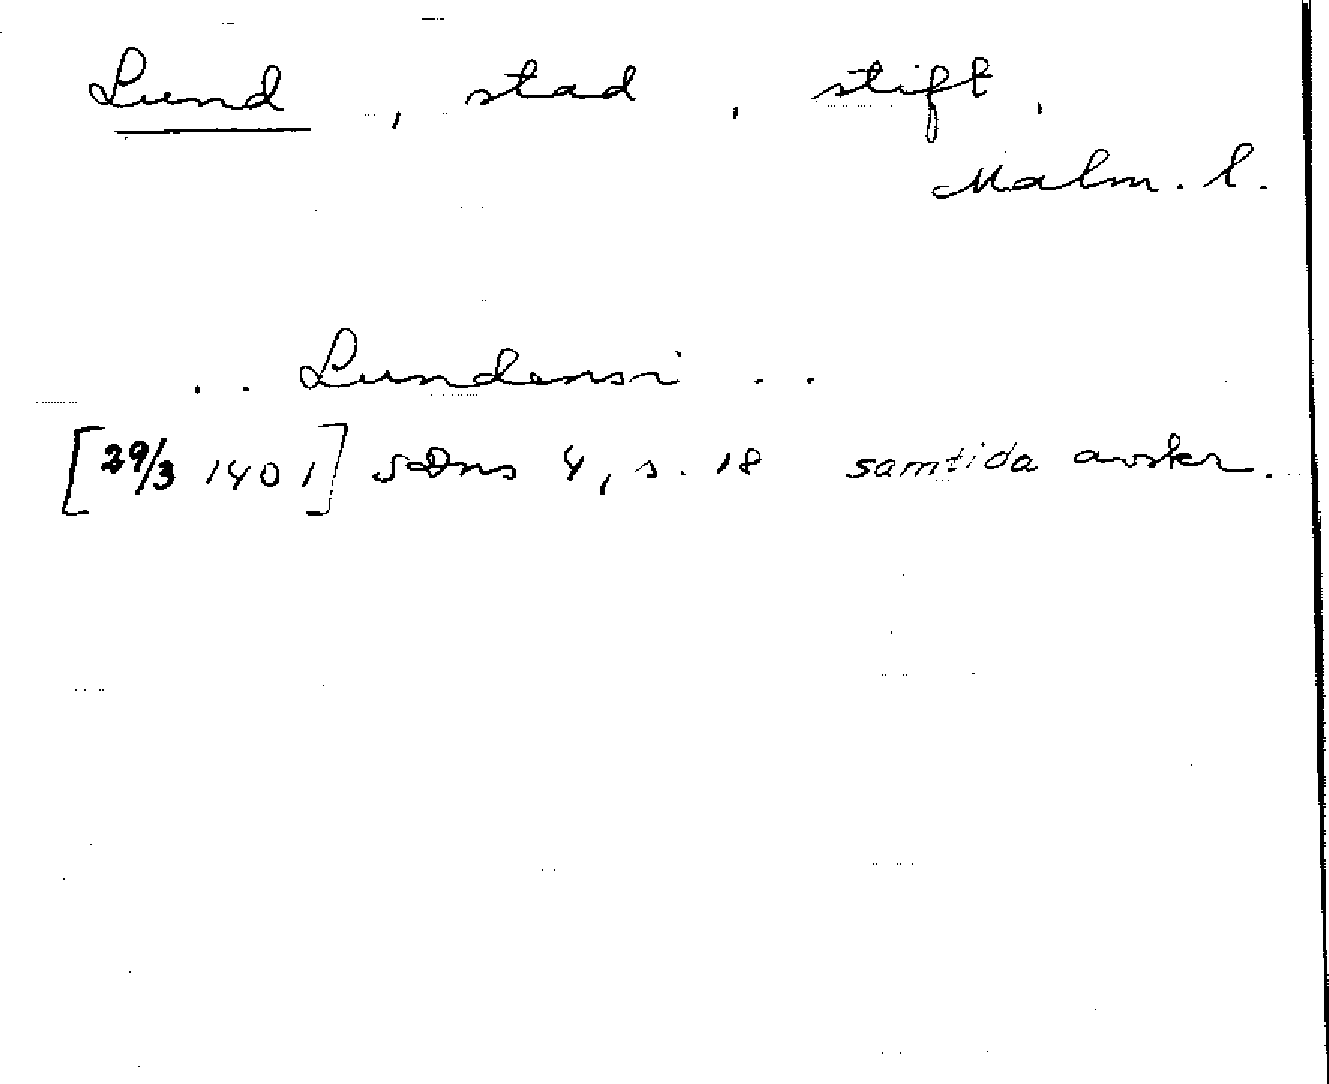 Lund, stad, stift,
Malm. l.
.. Lundensi ..
[29/3 1401] SDns 4, s. 18 samtida avskr.